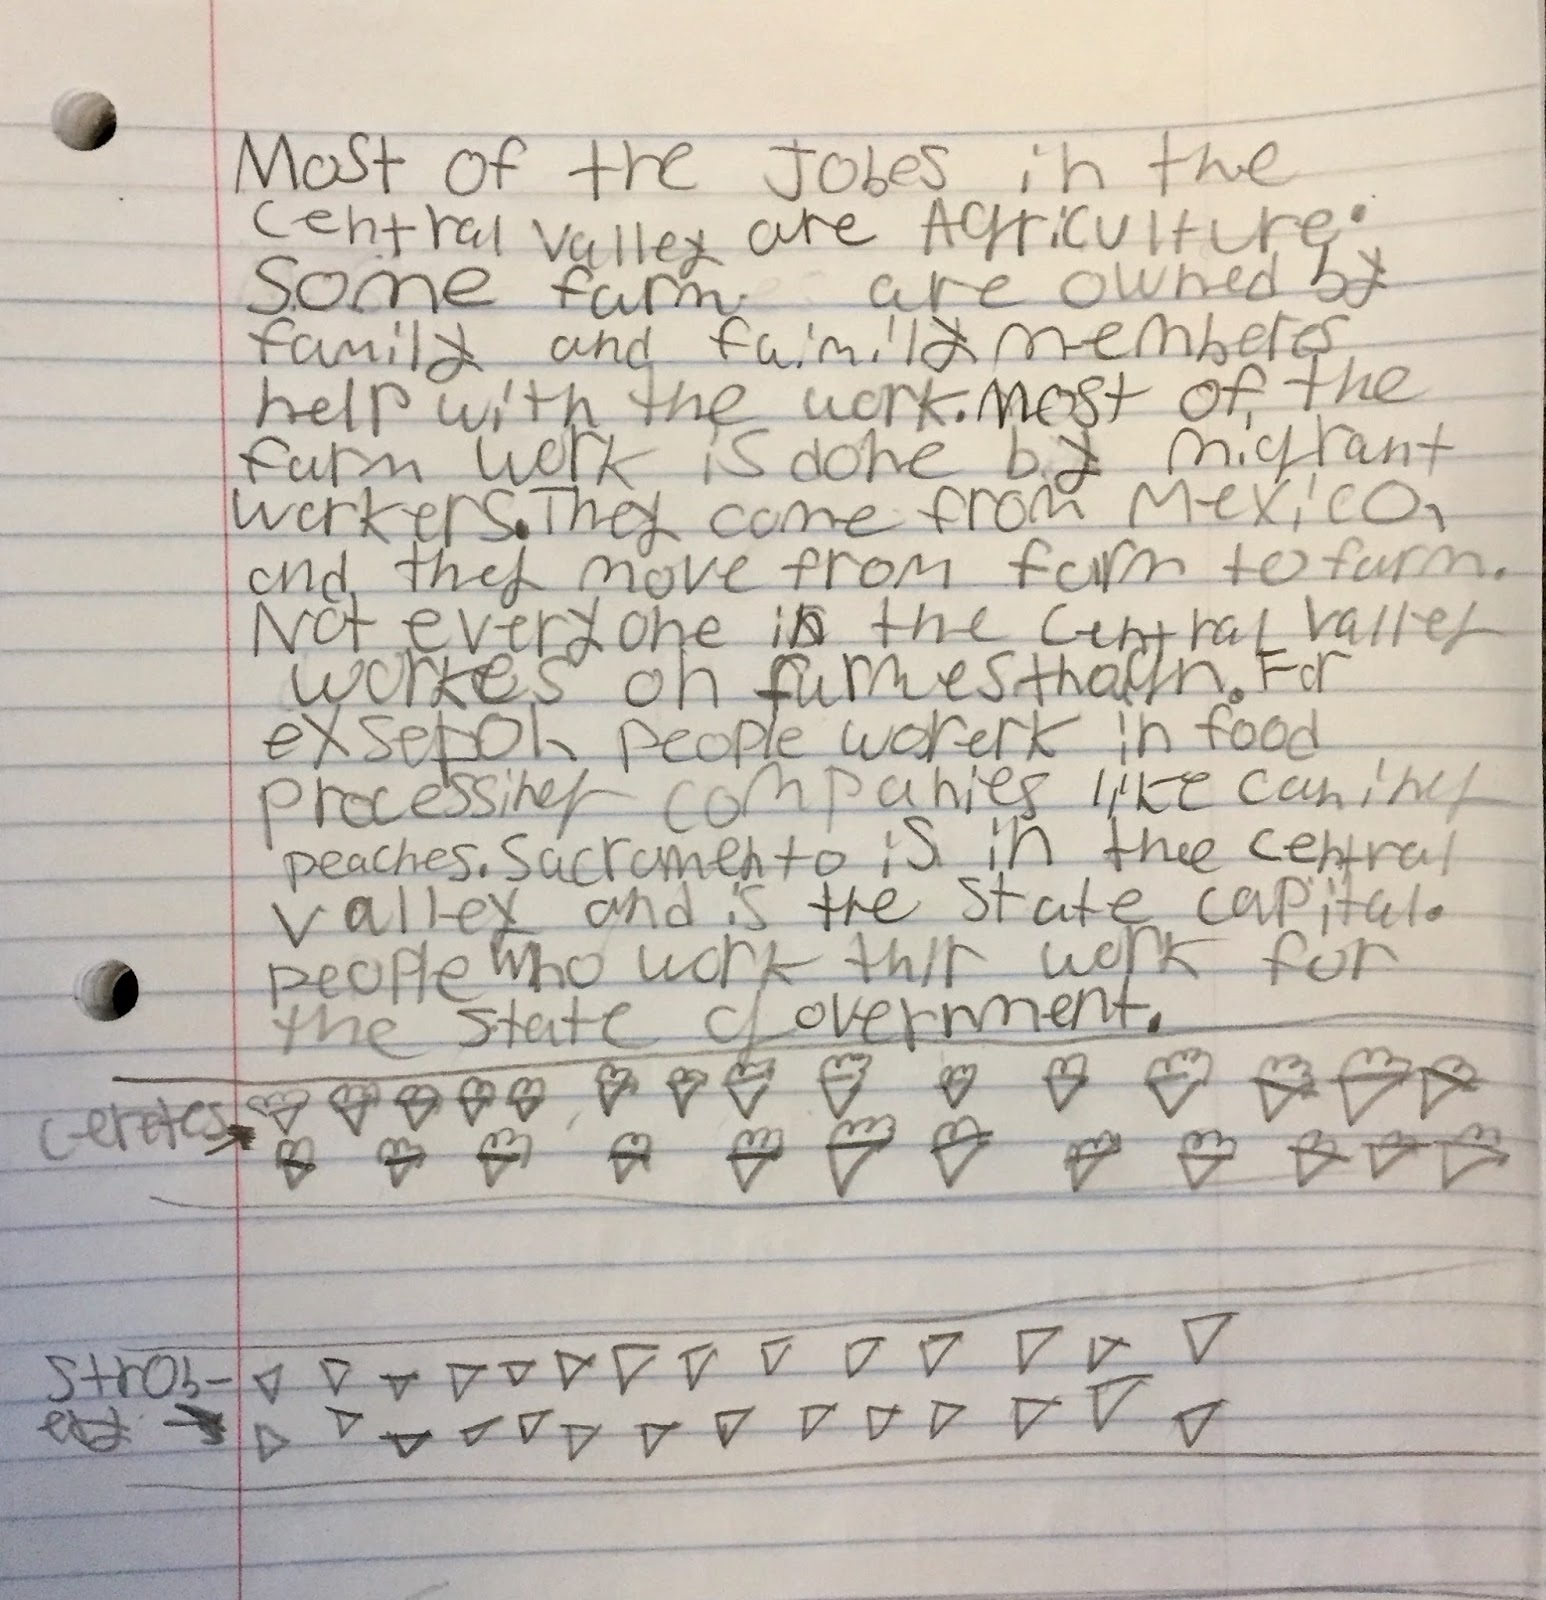 Most of the Jobes in the
central valley are Agriculture.
Some farm are owned by
family and faimily memberes
help with the work. Most of the
farm work is done by migrant
workers. They come from Mexico,
and they move from farm to farm.
Not everyone in the central valley
workes on farmes
For
exsepol people worerk in food
processing companies like caning
peaches. Sacramento is in the central
valley and is the state capital.
people who work thir work for
the state government.
Strob-